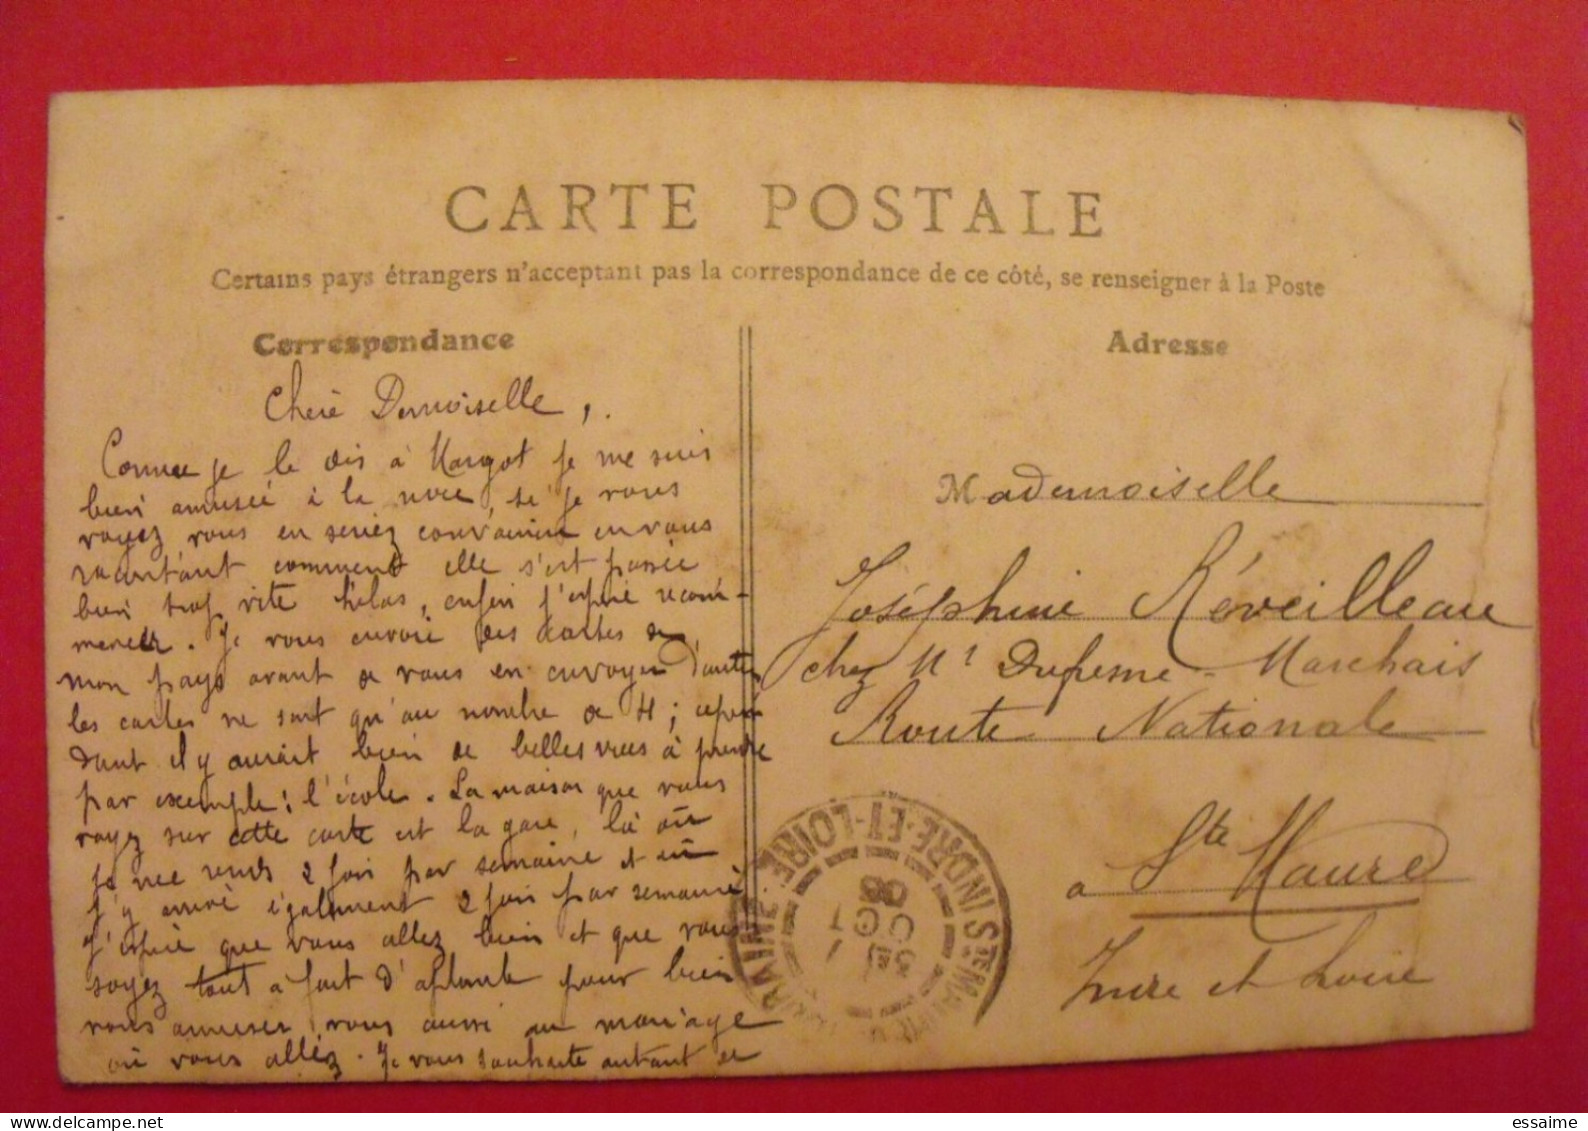 CARTE POSTALE
Certains pays étrangers n'acceptant pas la correspondance de ce côté, se renseigner à la Poste
Correspondance
Chère Demoiselle,
Comme je le dis à Margot je me suis
bien amusée à la noce, si je vous
voyez vous en seriez convaincu en vous
racontant comment elle s'est passée
bien trop vite hélas, enfin j'espère recom-
mencer. Je vous envoie des cartes de
mon pays avant de vous en envoyer d'autres
les cartes ne sont qu'au nombre de 4 ; cepen
dant il y aurait bien de belles vues à prendre
par exemple : l'école. La maison que vous
voyez sur cette carte est la gare, là où
je me rends 2 fois par semaine et où
j'y arrive également 2 fois par semaine.
J'espère que vous allez bien et que vous
soyez tout à fait d'aplomb pour bien
vous amuser, vous aussi au mariage
où vous allez. Je vous souhaite autant de
Adresse
Mademoiselle
Joséphine Réveilleau
chez Mr Dufresne-Marchais
Route Nationale
à Ste Maure
Indre et Loire
INDRE-ET-LOIRE
OCT
08
essaime